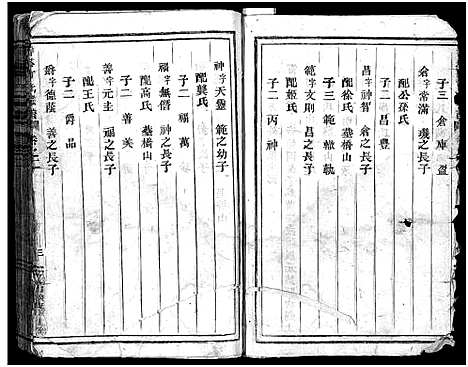 子三 倉 庫 盈
倉 字常滿 瓊之長子
配公孫氏
子二 昌 豊
昌 字神智 倉之長子
配徐氏 墓橋山
子三 範 轍 軌
範 字文則 昌之長子
配姬氏
子二 丙 神
神 字天靈 範之幼子
配龔氏
子二 福 萬
福 字無僭 神之長子
配高氏 墓橋山
子二 善 美
善 字元圭 福之長子
配王氏
子二 爵 品
爵 字德蔭 善之長子